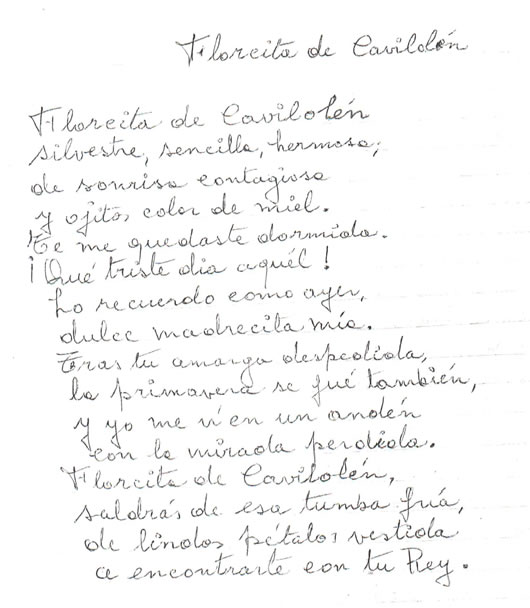 Florcita de Cavilolén
Florcita de Cavilolén
silvestre, sencilla, hermosa;
de sonrisa contagiosa
y ojitos color de miel.
Te me quedaste dormida.
¡Qué triste dia aquél!
Lo recuerdo como ayer,
dulce madrecita mía.
Tras tu amarga despedida,
la primavera se fué también,
y yo me ví en un andén
con la mirada perdida.
Florcita de Cavilolén,
saldrás de esa tumba fría,
de lindos pétalos vestida
a encontrarte con tu Rey.